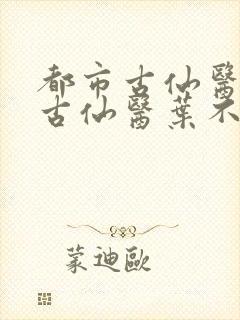 都市古仙醫
古仙醫葉不
蒙迪歐